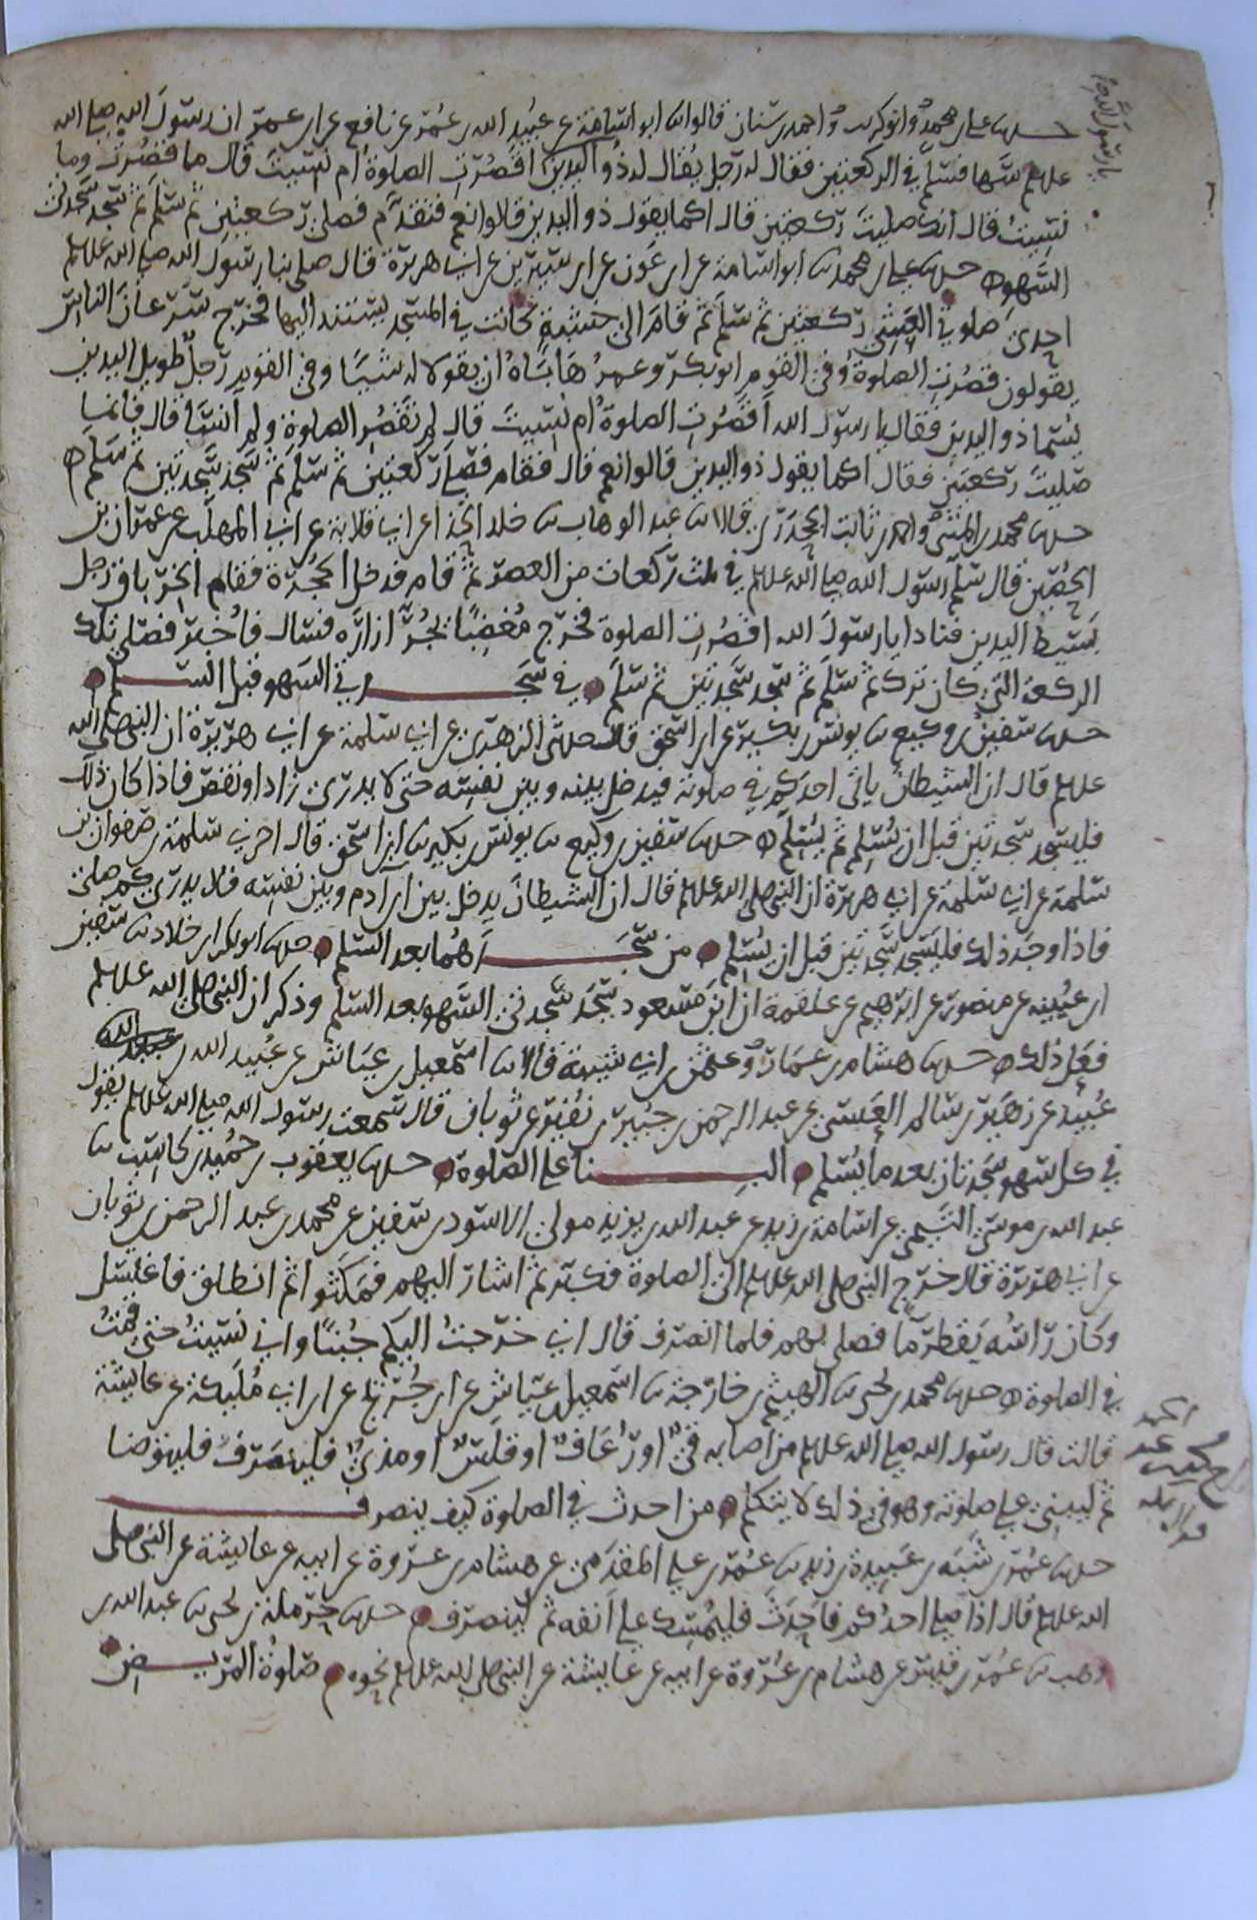 حدثنا علي بن محمد وابو كريب واحمد بن سنان قالوا ثنا ابو اسامة عن عبيد الله بن عمر عن نافع عن ابن عمر ان رسول الله صلى الله
عليه وسلم سها فسلم في الركعتين فقال له رجل يقال له ذو اليدين اقصرت الصلوة ام نسيت قال ما قصرت وما
نسيت قال انك صليت ركعتين قال اكما يقول ذو اليدين قالوا نعم فتقدم فصلى ركعتين ثم سلم ثم سجد سجدتي
السهو حدثنا علي بن محمد ثنا ابو اسامة عن ابن عون عن ابن سيرين عن ابي هريرة قال صلى بنا رسول الله صلى الله عليه وسلم
احدى صلوتي العشي ركعتين ثم سلم ثم قام الى خشبة كانت في المسجد يستند اليها فخرج سرعان الناس
يقولون قصرت الصلوة وفي القوم ابو بكر وعمر هاباه ان يقولا له شيا وفي القوم رجل طويل اليدين
يسما ذو اليدين فقال يا رسول الله اقصرت الصلوة ام نسيت قال لم تقصر الصلوة ولم انس قال فانما
صليت ركعتين فقال اكما يقول ذو اليدين قالوا نعم قال فقام فصلى ركعتين ثم سلم ثم سجد سجدتين ثم سلم
حدثنا محمد بن المثنى واحمد بن ثابت الجحدري قالا ثنا عبد الوهاب ثنا خالد الحذا عن ابي قلابة عن ابي المهلب عن عمران بن
الحصين قال سلم رسول الله صلى الله عليه وسلم في ثلث ركعات من العصر ثم قام فدخل الحجرة فقام الخرباق رجل
بسيط اليدين فنادا يا رسول الله اقصرت الصلوة فخرج مغضبا يجر ازاره فسال فاخبر فصلى تلك
الركعة التي كان ترك ثم سلم ثم سجد سجدتين ثم سلم في سجدتي السهو قبل السلم
حدثنا سفين بن وكيع ثنا يونس بن بكير عن ابن اسحق قال حدثني الزهري عن ابي سلمة عن ابي هريرة ان النبي صلى الله
عليه وسلم قال ان الشيطان ياتي احدكم في صلوته فيدخل بينه وبين نفسه حتى لا يدري زاد او نقص فاذا كان ذلك
فليسجد سجدتين قبل ان يسلم ثم يسلم حدثنا سفين بن وكيع ثنا يونس بن بكير ثنا ابن اسحق قال اخبرني سلمة بن صفوان بن
سلمة عن ابي سلمة عن ابي هريرة ان النبي صلى الله عليه وسلم قال ان الشيطان يدخل بين ابن آدم وبين نفسه فلا يدري كم صلى
فاذا وجد ذلك فليسجد سجدتين قبل ان يسلم من سجدهما بعد السلم حدثنا ابو بكر بن خلاد ثنا سفين
ابن عيينه عن منصور عن ابرهيم عن علقمة ان ابن مسعود سجد سجدتي السهو بعد السلم وذكر ان النبي صلى الله عليه وسلم
فعل ذلك حدثنا هشام بن عمار وعثمن بن ابي شيبة قالا ثنا اسمعيل بن عياش عن عبيد الله بن
عبيد عن زهير بن سالم العنسي عن عبد الرحمن بن جبير بن نفير عن ثوبان قال سمعت رسول الله صلى الله عليه وسلم يقول
في كل سهو سجدتان بعد ما يسلم البنا على الصلوة حدثنا يعقوب بن حميد بن كاسب ثنا
عبد الله بن موسى التيمي عن اسامة بن زيد عن عبد الله بن يزيد مولى الاسود بن سفين عن محمد بن عبد الرحمن بن ثوبان
عن ابي هريرة قال خرج النبي صلى الله عليه وسلم الى الصلوة فكبر ثم اشار اليهم فمكثوا ثم انطلق فاغتسل
وكان راسه يقطر ما فصلى بهم فلما انصرف قال اني خرجت اليكم جنبا واني نسيت حتى قمت
في الصلوة حدثنا محمد بن يحيى ثنا الهيثم بن خارجة ثنا اسمعيل بن عياش عن ابن جريج عن ابن ابي مليكة عن عايشة
قالت قال رسول الله صلى الله عليه وسلم من اصابه قي او رعاف او قلس او مذي فلينصرف فليتوضا
ثم ليبني على صلوته وهو في ذلك لا يتكلم من احدث في الصلوة كيف ينصرف
حدثنا عمر بن شبه بن عبيدة بن زيد ثنا عمر بن علي المقدمي عن هشام بن عروة عن ابيه عن عايشة عن النبي صلى
الله عليه وسلم قال اذا صلى احدكم فاحدث فليمسك على انفه ثم لينصرف حدثنا حرملة بن يحيى ثنا عبد الله بن
وهب ثنا عمر بن قيس عن هشام بن عروة عن ابيه عن عايشة عن النبي صلى الله عليه وسلم نحوه صلوة المريض